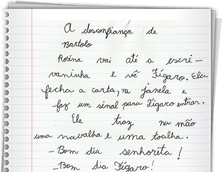 A desconfiança de
Bartolo
Rosina vai até a escri-
vaninha e vê Fígaro. Ela
fecha a carta, na janela e
faz um sinal para Fígaro entrar.
Ele traz na mão
uma navalha e uma toalha.
- Bom dia senhorita!
- Bom dia Fígaro!